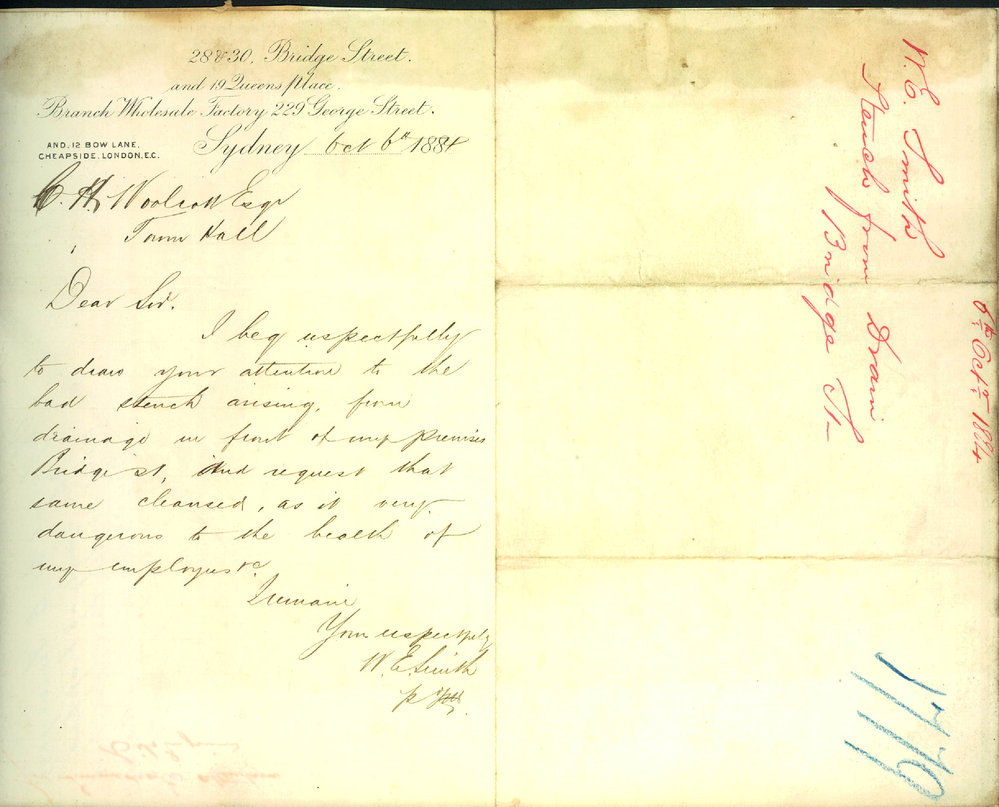 28 & 30, Bridge Street.
and 19 Queens place.
Branch Wholesale Factory 229 George Street.
AND, 12 BOW LANE,
CHEAPSIDE, LONDON, E.C.
Sydney Oct 6th 1884
C. H. Woolcott Esqr
Town Hall
Dear Sir.
I beg respectfully
to draw your attention to the
bad stench arising, from
drainage in front of my premises
Bridge st, and request that
same cleansed, as it very
dangerous to the health of
my employees &c.
I remain
Your respectfully
W. E. Smith
p
W. E. Smith
Stench from Drain
Bridge St
6th Octr 1884